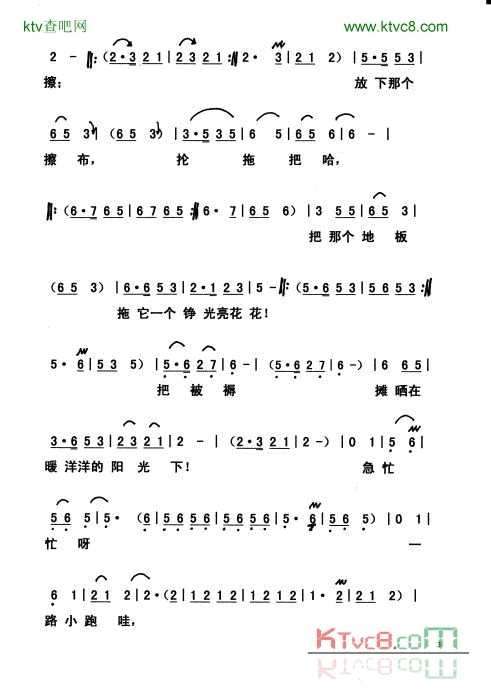 ktv查吧网 www.ktvc8.com
2 - |:(2·3 2 1|2 3 2 1:|2· 3|2 1 2)|5·5 5 3|
擦; 放 下那个
6 5 3 (6 5 3)|3·5 3 5|6 5|6 5|6 -|
擦 布, 抡 拖 把 哈,
|:(6·7 6 5|6 7 6 5:|6· 7|6 5 6)|3 5 5|6 5 3|
把 那个 地 板
(6 5 3)|6·6 5 3|2·1 2 3|5 -|:(5·6 5 3|5 6 5 3:|
拖 它一个 铮 光亮花 花!
5· 6|5 3 5)|5·6 2 7|6 -|(5·6 2 7|6 -)|6 6 5|
把 被 褥 摊 晒在
3·6 5 3|2 3 2 1|2 -|(2·3 2 1|2 -)|0 1|5 6|
暖 洋洋的 阳 光 下! 急 忙
5 6 5|5· (6|5 6 5 6|5 6 5 6|5· 6|5 6 5)|0 1|
忙 呀 一
6 1|2 1 2|2·(2|1 2 1 2|1 2 1 2|1· 2|2 1 2)|
路 小 跑 哇,
KTvc8.com
3